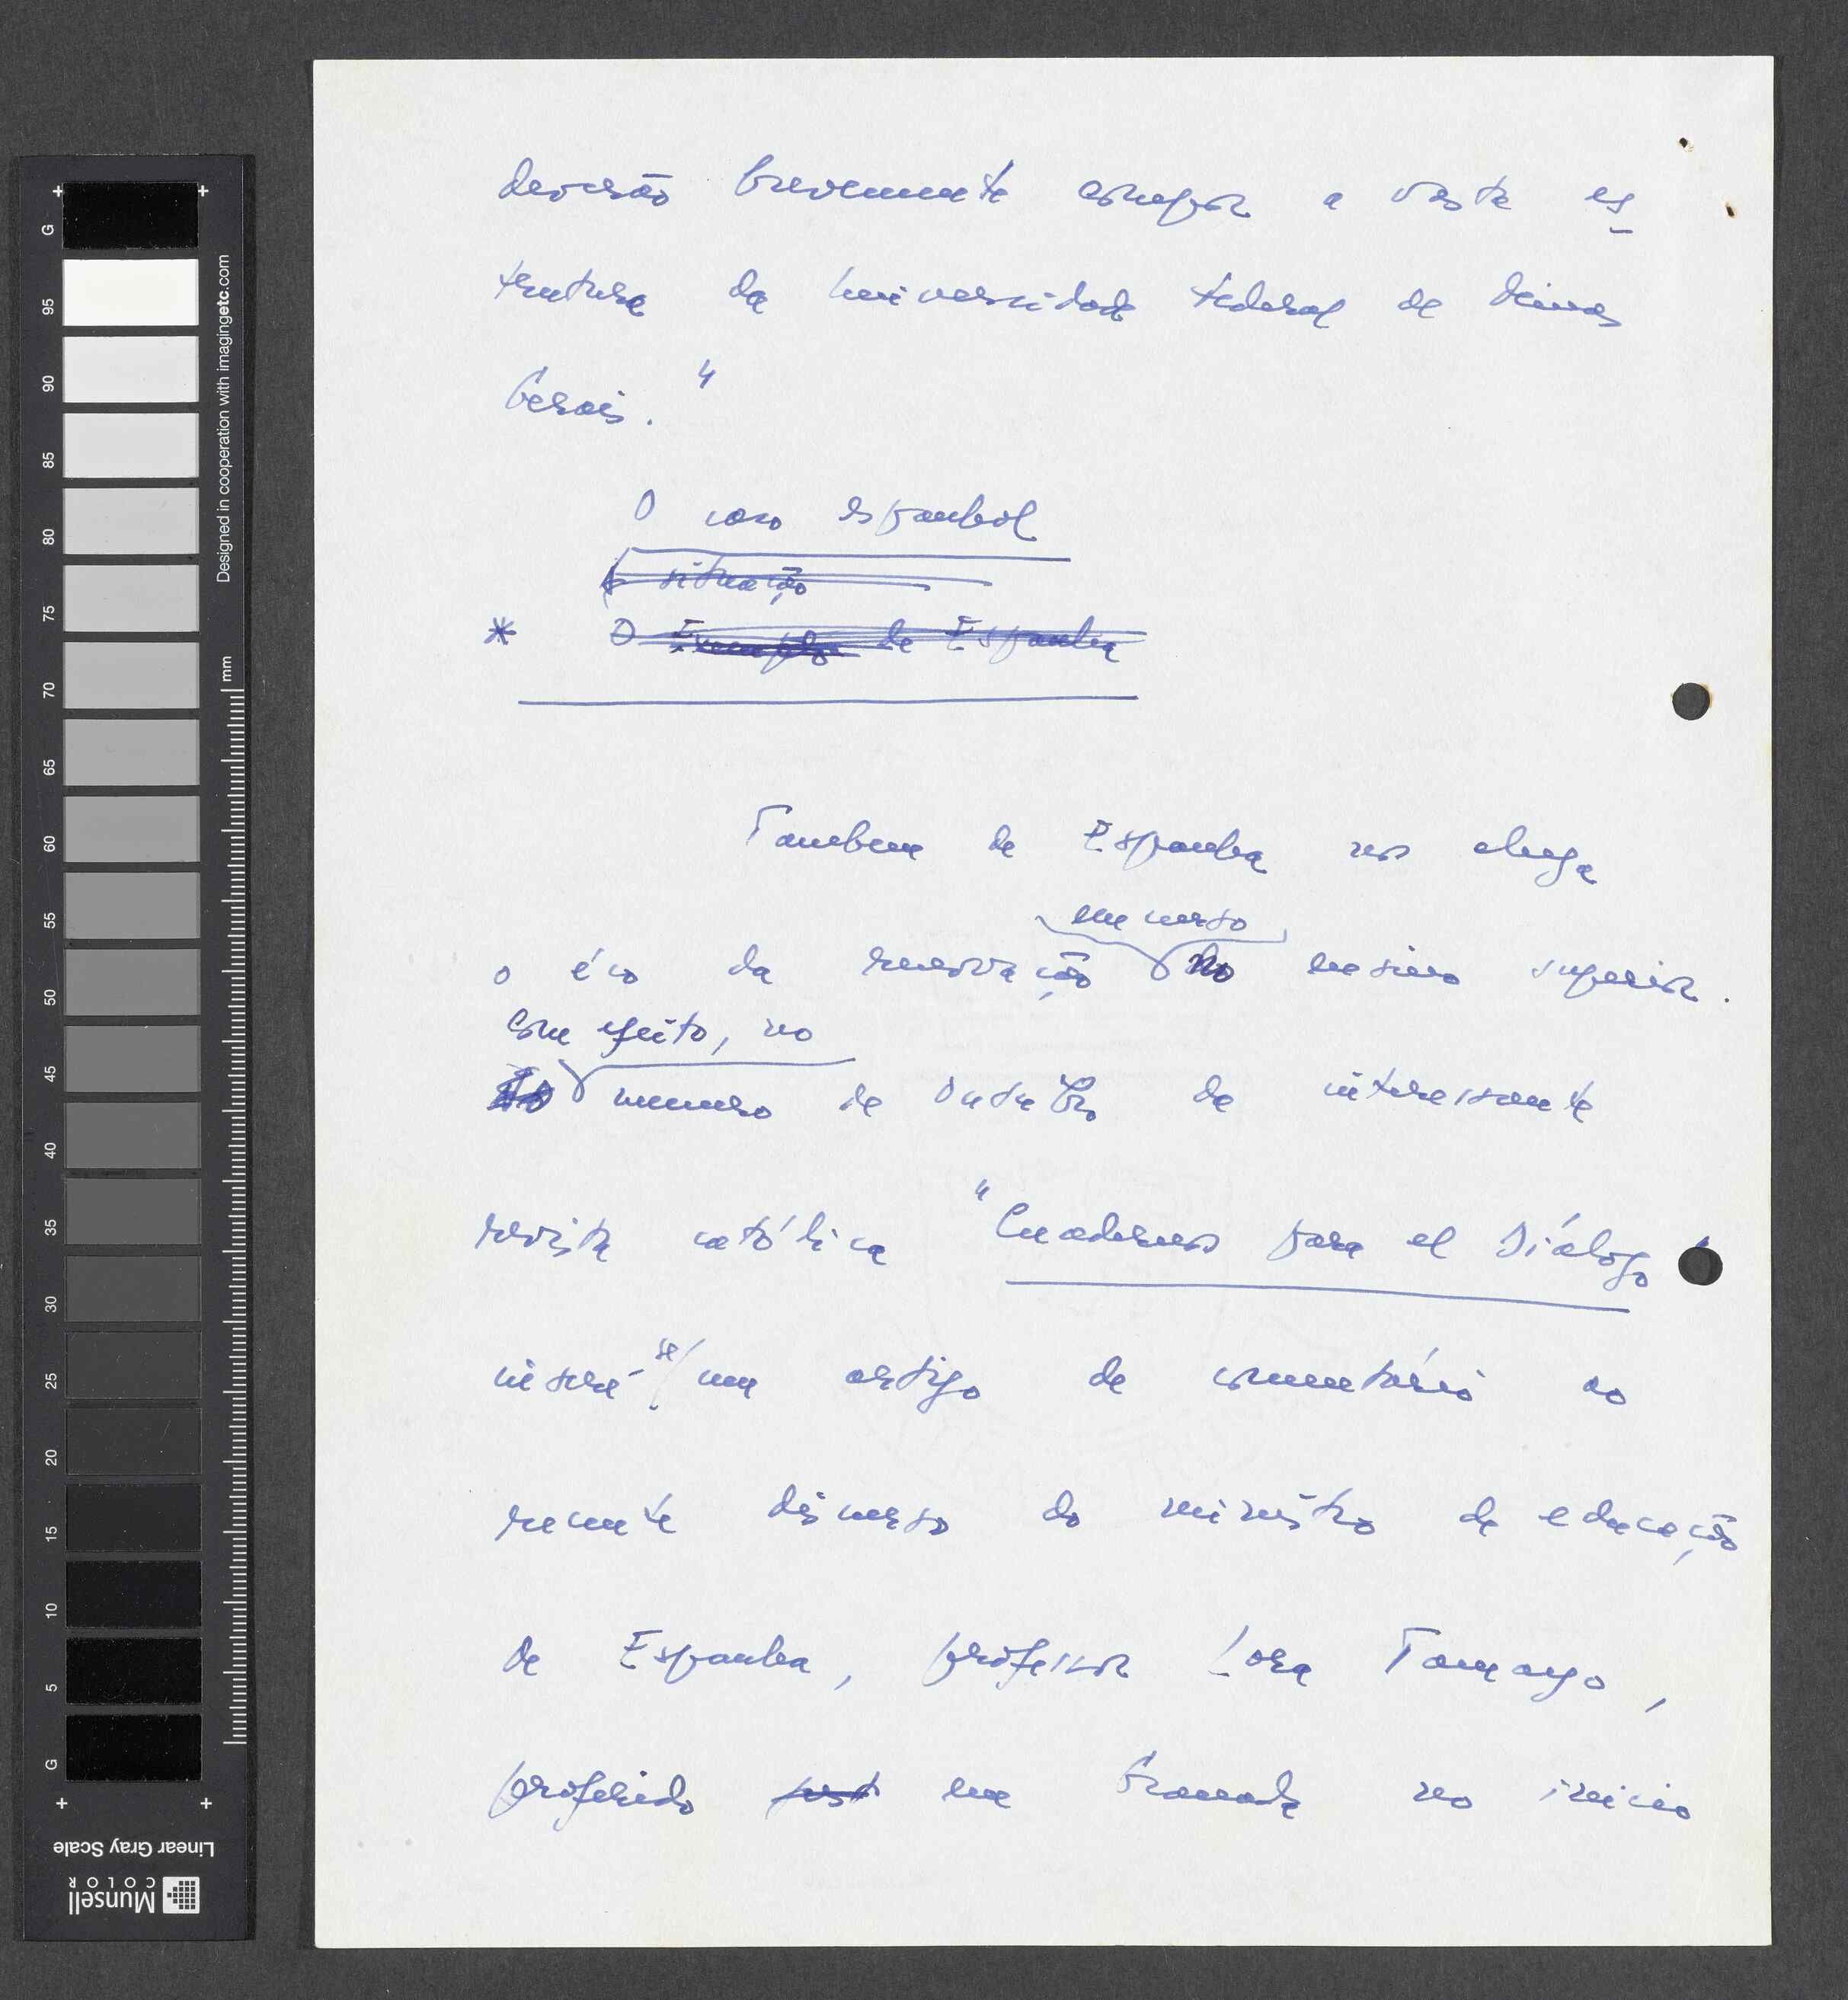 deverão brevemente compor a vasta es
trutura da Universidade Federal de Minas
Gerais."
O caso espanhol
A situação
* O Exemplo de Espanha
Tambem de Espanha nos chega
em curso
o éco da renovação no ensino superior.
Com efeito, no
No numero de Outubro da interessante
revista católica "Cuadernos para el Diálogo"
insere-se um artigo de comentário ao
recente discurso do ministro da educação
de Espanha, professor Lora Tamayo,
proferido em Granada no inicio
G
95
90
85
80
75
70
65
60
55
50
45
40
35
30
25
20
15
10
5
G
mm
Designed in cooperation with imagingetc.com
Linear Gray Scale
Munsell
COLOR